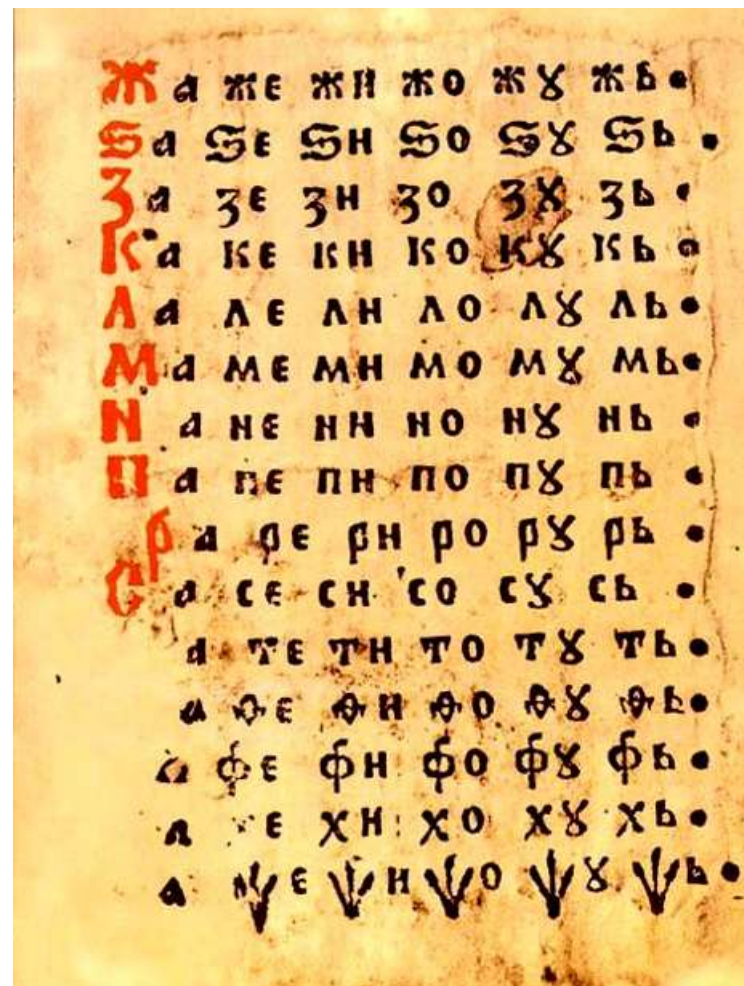 Жа же жи жо жꙋ жь •
Ѕа ѕе ѕи ѕо ѕꙋ ѕь •
За зе зи зо зꙋ зь •
Ка ке ки ко кꙋ кь •
Ла ле ли ло лꙋ ль •
Ма ме ми мо мꙋ мь •
На не ни но нꙋ нь •
Па пе пи по пꙋ пь •
Ра ре ри ро рꙋ рь •
Са се си со сꙋ сь •
а те ти то тꙋ ть •
а ѳе ѳи ѳо ѳꙋ ѳь •
а фе фи фо фꙋ фь •
а хе хи хо хꙋ хь •
а ѱе ѱи ѱо ѱꙋ ѱь •